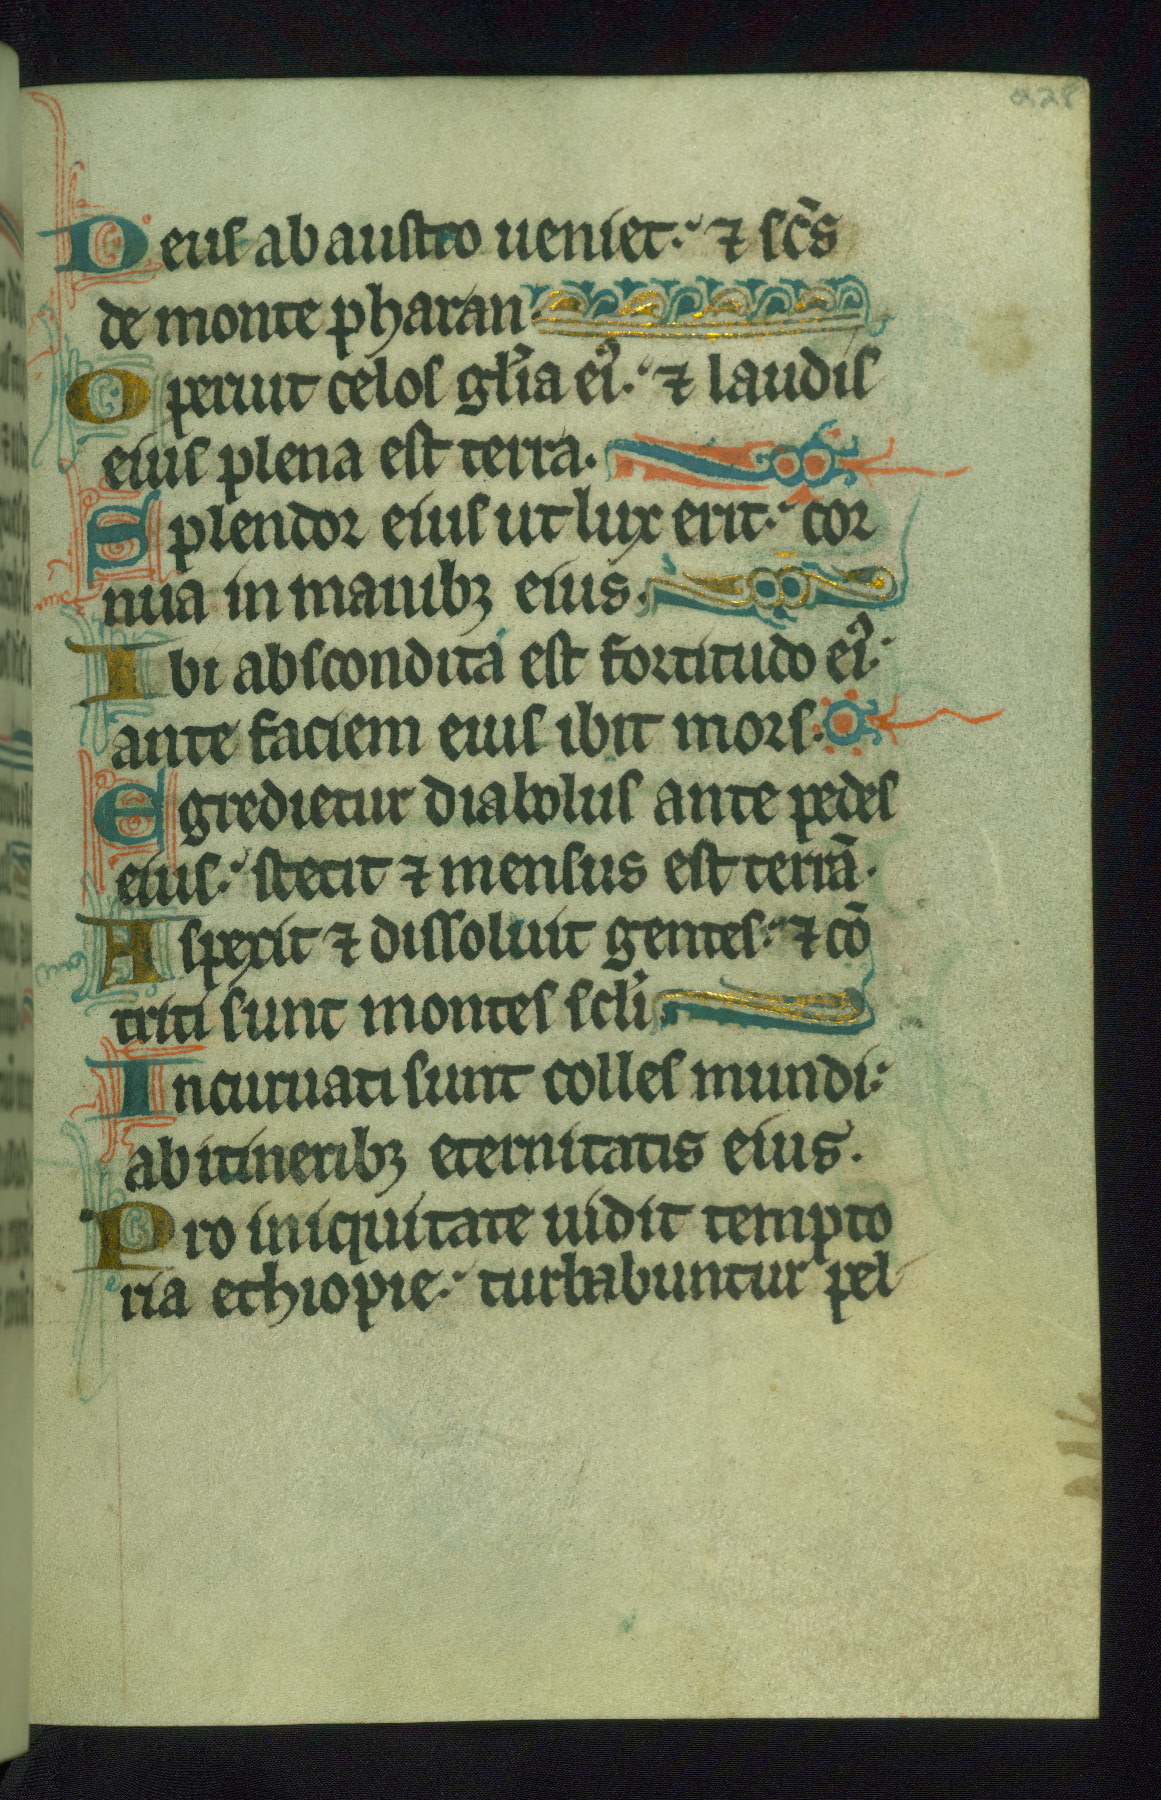 228
Deus ab austro ueniet: ⁊ sc̄s
de monte pharan.
Operuit celos gl̄ia ei᷒: ⁊ laudis
eius plena est terra.
Splendor eius ut lux erit: cor
nua in manibꝫ eius.
Ibi abscondita est fortitudo ei᷒:
ante faciem eius ibit mors.
Egredietur diabolus ante pedes
eius: stetit ⁊ mensus est terrā.
Aspexit ⁊ dissoluit gentes: ⁊ cō
triti sunt montes scl̄i.
Incuruati sunt colles mundi:
ab itineribꝫ eternitatis eius.
Pro iniquitate uidit tempto
ria ethiopie: turbabuntur pel